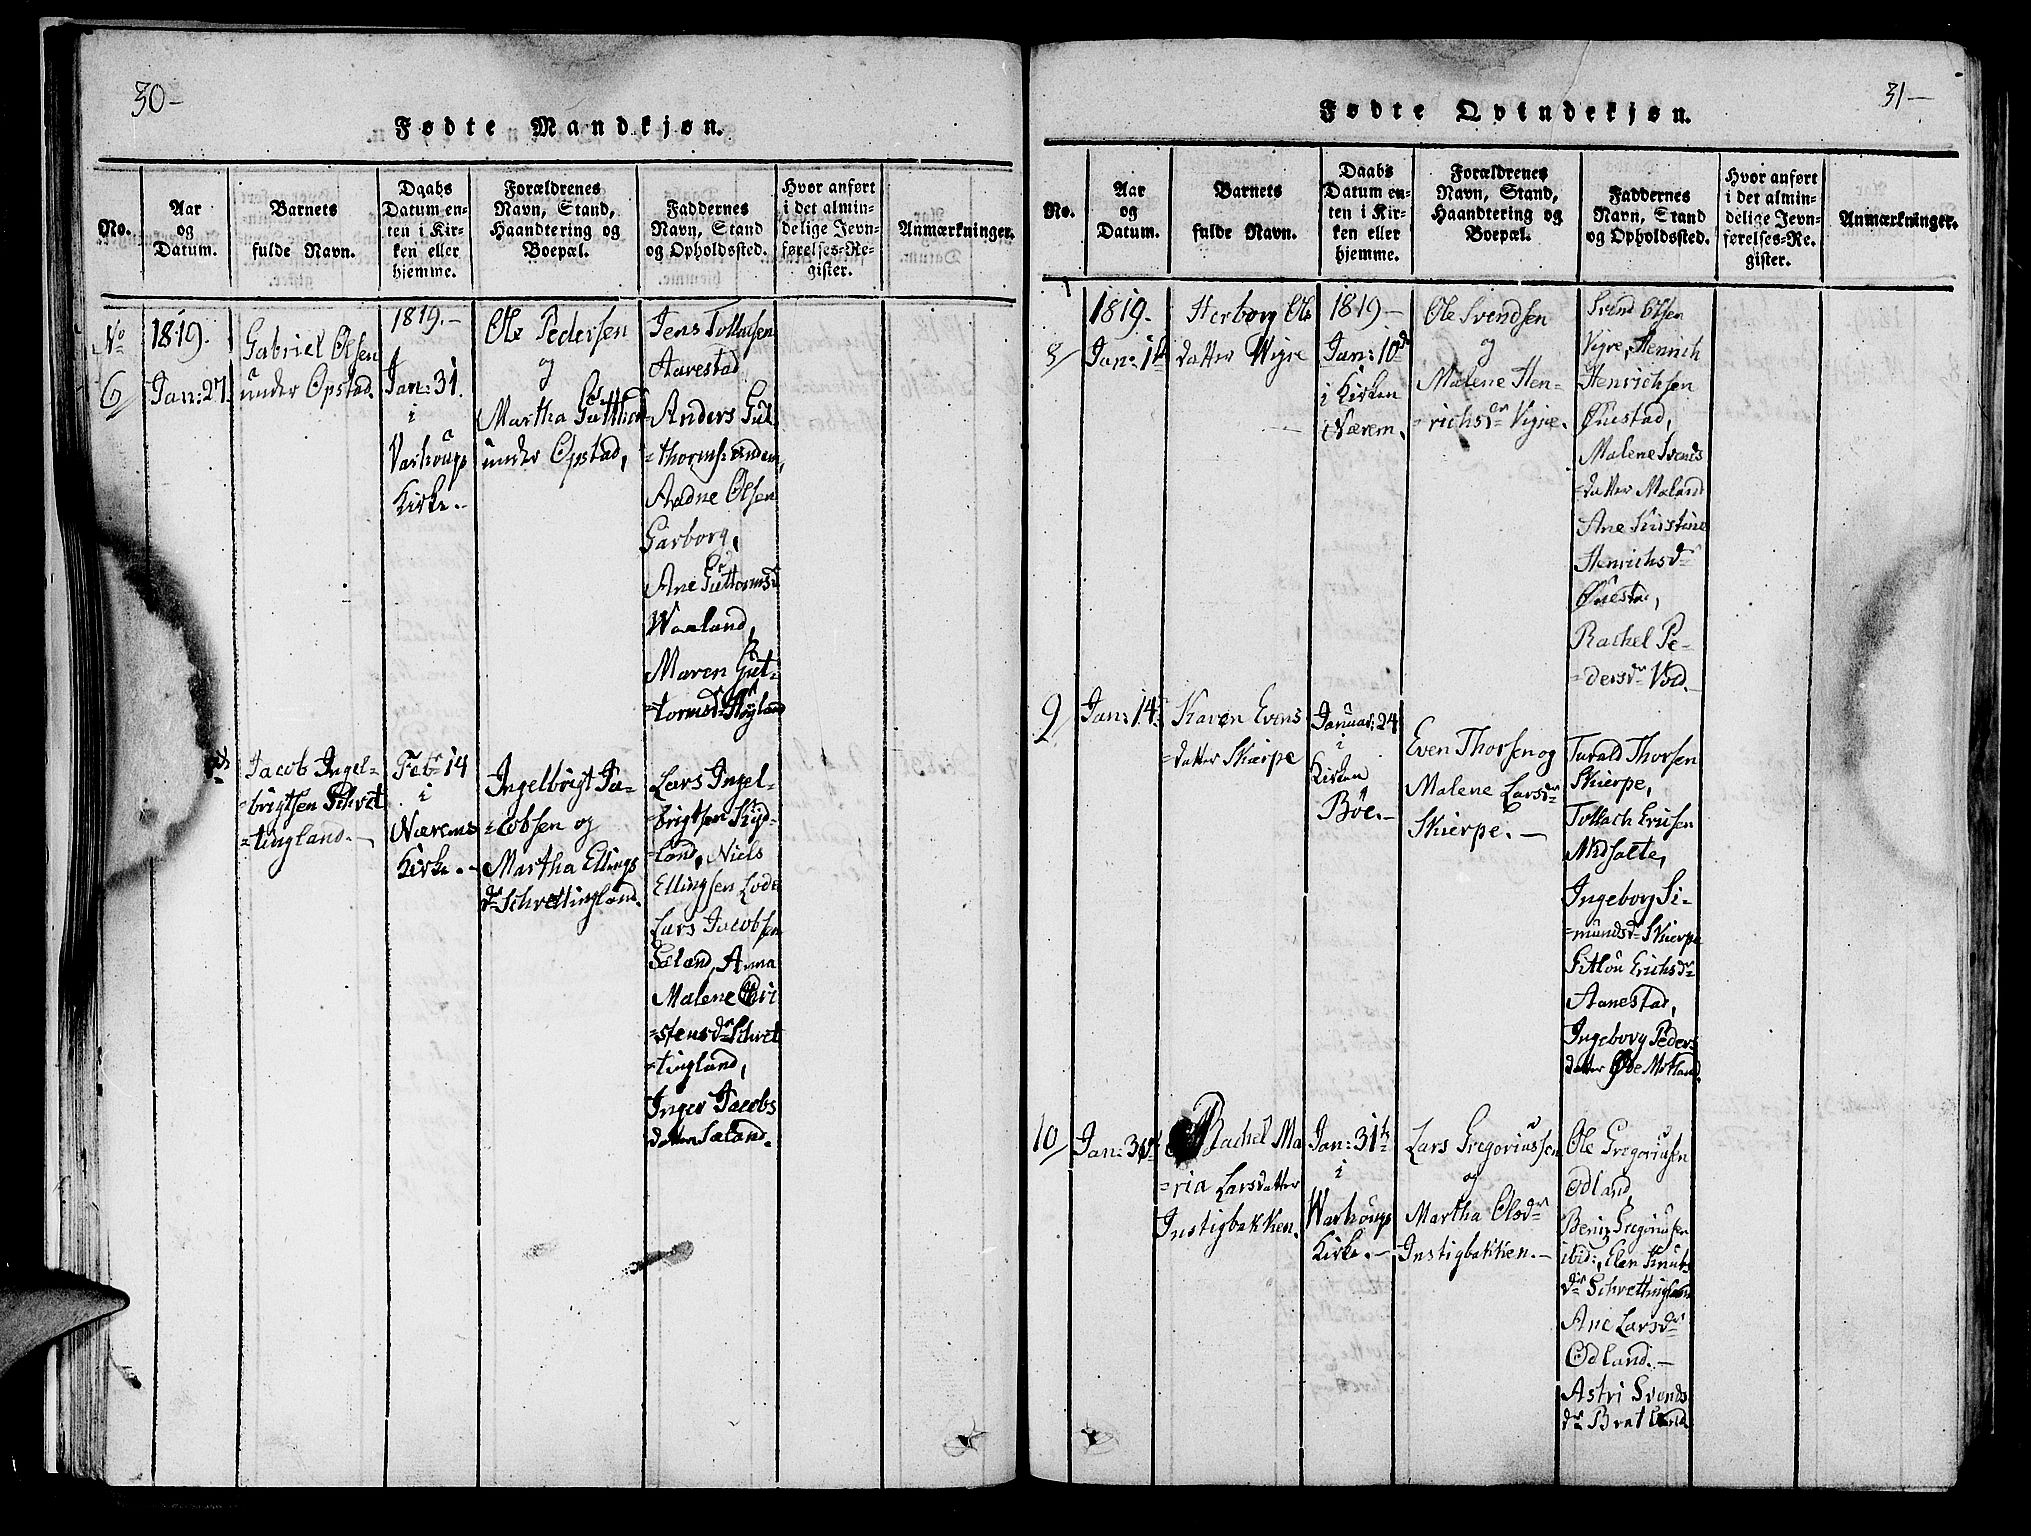 30-
Fødte Mandkjøn.
No.
Aar
og
Datum.
Barnets
fulde Navn.
Daabs
Datum en-
ten i Kir-
ken eller
hjemme.
Forældrenes
Navn, Stand,
Haandtering og
Boepæl.
Faddernes
Navn, Stand
og Opholdssted.
Hvor anført
i det almin-
delige Jevn-
førelses-Re-
gister.
Anmærkninger.
No
6
1819.
Jan: 27.
Gabriel Olsen
under Opstad.
1819.-
Jan: 31.
i
Varhougs
Kirke.-
Ole Pedersen
og
Martha Gutthor
under Opstad,
Jens Tollagsen
Aarestad
Anders Gul
=thorms:
Aadne Olsen
Garborg,
Ane Guttormsd
Waaland,
Maren Gut-
=tormsdr Høyland
Jacob Ingel-
=brigtsen Schret
=tingland.-
Febr 14
i
Nærems
Kirke.-
Ingelbrigt Ja-
=cobsen og
Martha Ellings
dr Schrettingland.
Lars Ingel-
=brigtsen
=land, Niels
Ellingsen Lode
Lars Jacobsen
Sæland, Anna
Malene Chri
=stensdr Schret
=tingland,
Inger Jacobs
datter Sæland.
31-
Fødte Qvindekjøn.
No.
Aar
og
Datum.
Barnets
fulde Navn.
Daabs
Datum en-
ten i Kir-
ken eller
hjemme.
Forældrenes
Navn, Stand,
Haandtering og
Boepæl.
Faddernes
Navn, Stand
og Opholdssted.
Hvor anført
i det almin-
delige Jevn-
førelses-Re-
gister.
Anmærkninger.
8
1819.
Jan: 1
Herborg Ols
datter Vigre
1819-
Jan: 10d
i Kirken
Nærem.
Ole Svendsen
og
Malene Hen-
=richsdr Vigre.
Svend Olsen
Vigre, Henrich
Henrichsen
Questad,
Malene Svends
=datter Mæland
Ane Kirstine
Henrichsdr
Questad,
Rachel Pe-
=dersdr Vold.-
9
Jan: 14
Karen Evens
datter Skierpe
Januar: 24
i
Kirken
Bøe.-
Even Thorsen og
Malene Larsdr
Skierpe.-
Tarald Thorsen
Skierpe,
Tollach Ericsen
Nedsalte,
Ingeborg Si-
=mundsdr Skierpe
Sitlou Erichsdr
Aanestad,
Ingeborg Peders
datter Motland.
10
Jan: 3
Rachel Ma
=ria Larsdatter
Instigbakken.
Jan: 31te
i
Warhougs
Kirke.-
Lars Gregoriussen
og
Martha Olsdr
Instigbakken.-
Ole Gregoriusen
Odland,
Gregoriusen
ibid:, Elen Knuts
dr Schrettingland
Ane Larsdr
Odland.-
Astri Svends
dr Bratland.